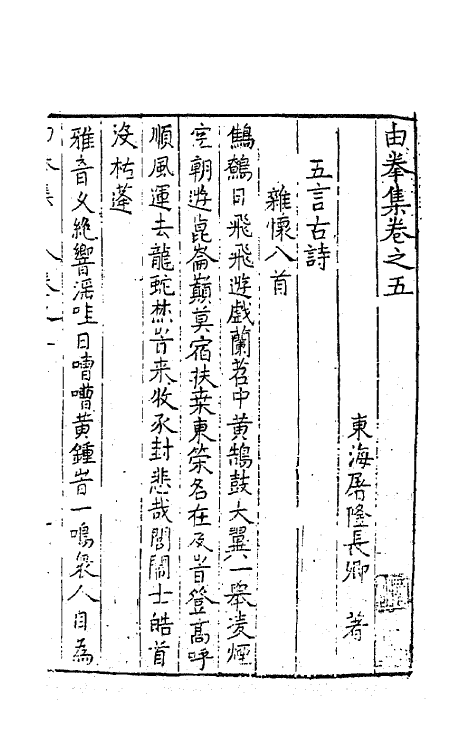 由拳集卷之五
東海屠隆長卿 著
五言古詩
雜懷八首
鷦鷯日飛飛遊戲蘭苕中黃鵠鼓大翼一舉凌煙
空朝遊崑崙巔莫宿扶桑東榮名在及旹登高呼
順風運去龍蛇蟄旹来牧豕封悲哉閭闬士皓首
没枯蓬
雅音久絶響滛哇日嘈嘈黃鍾旹一鳴衆人自為